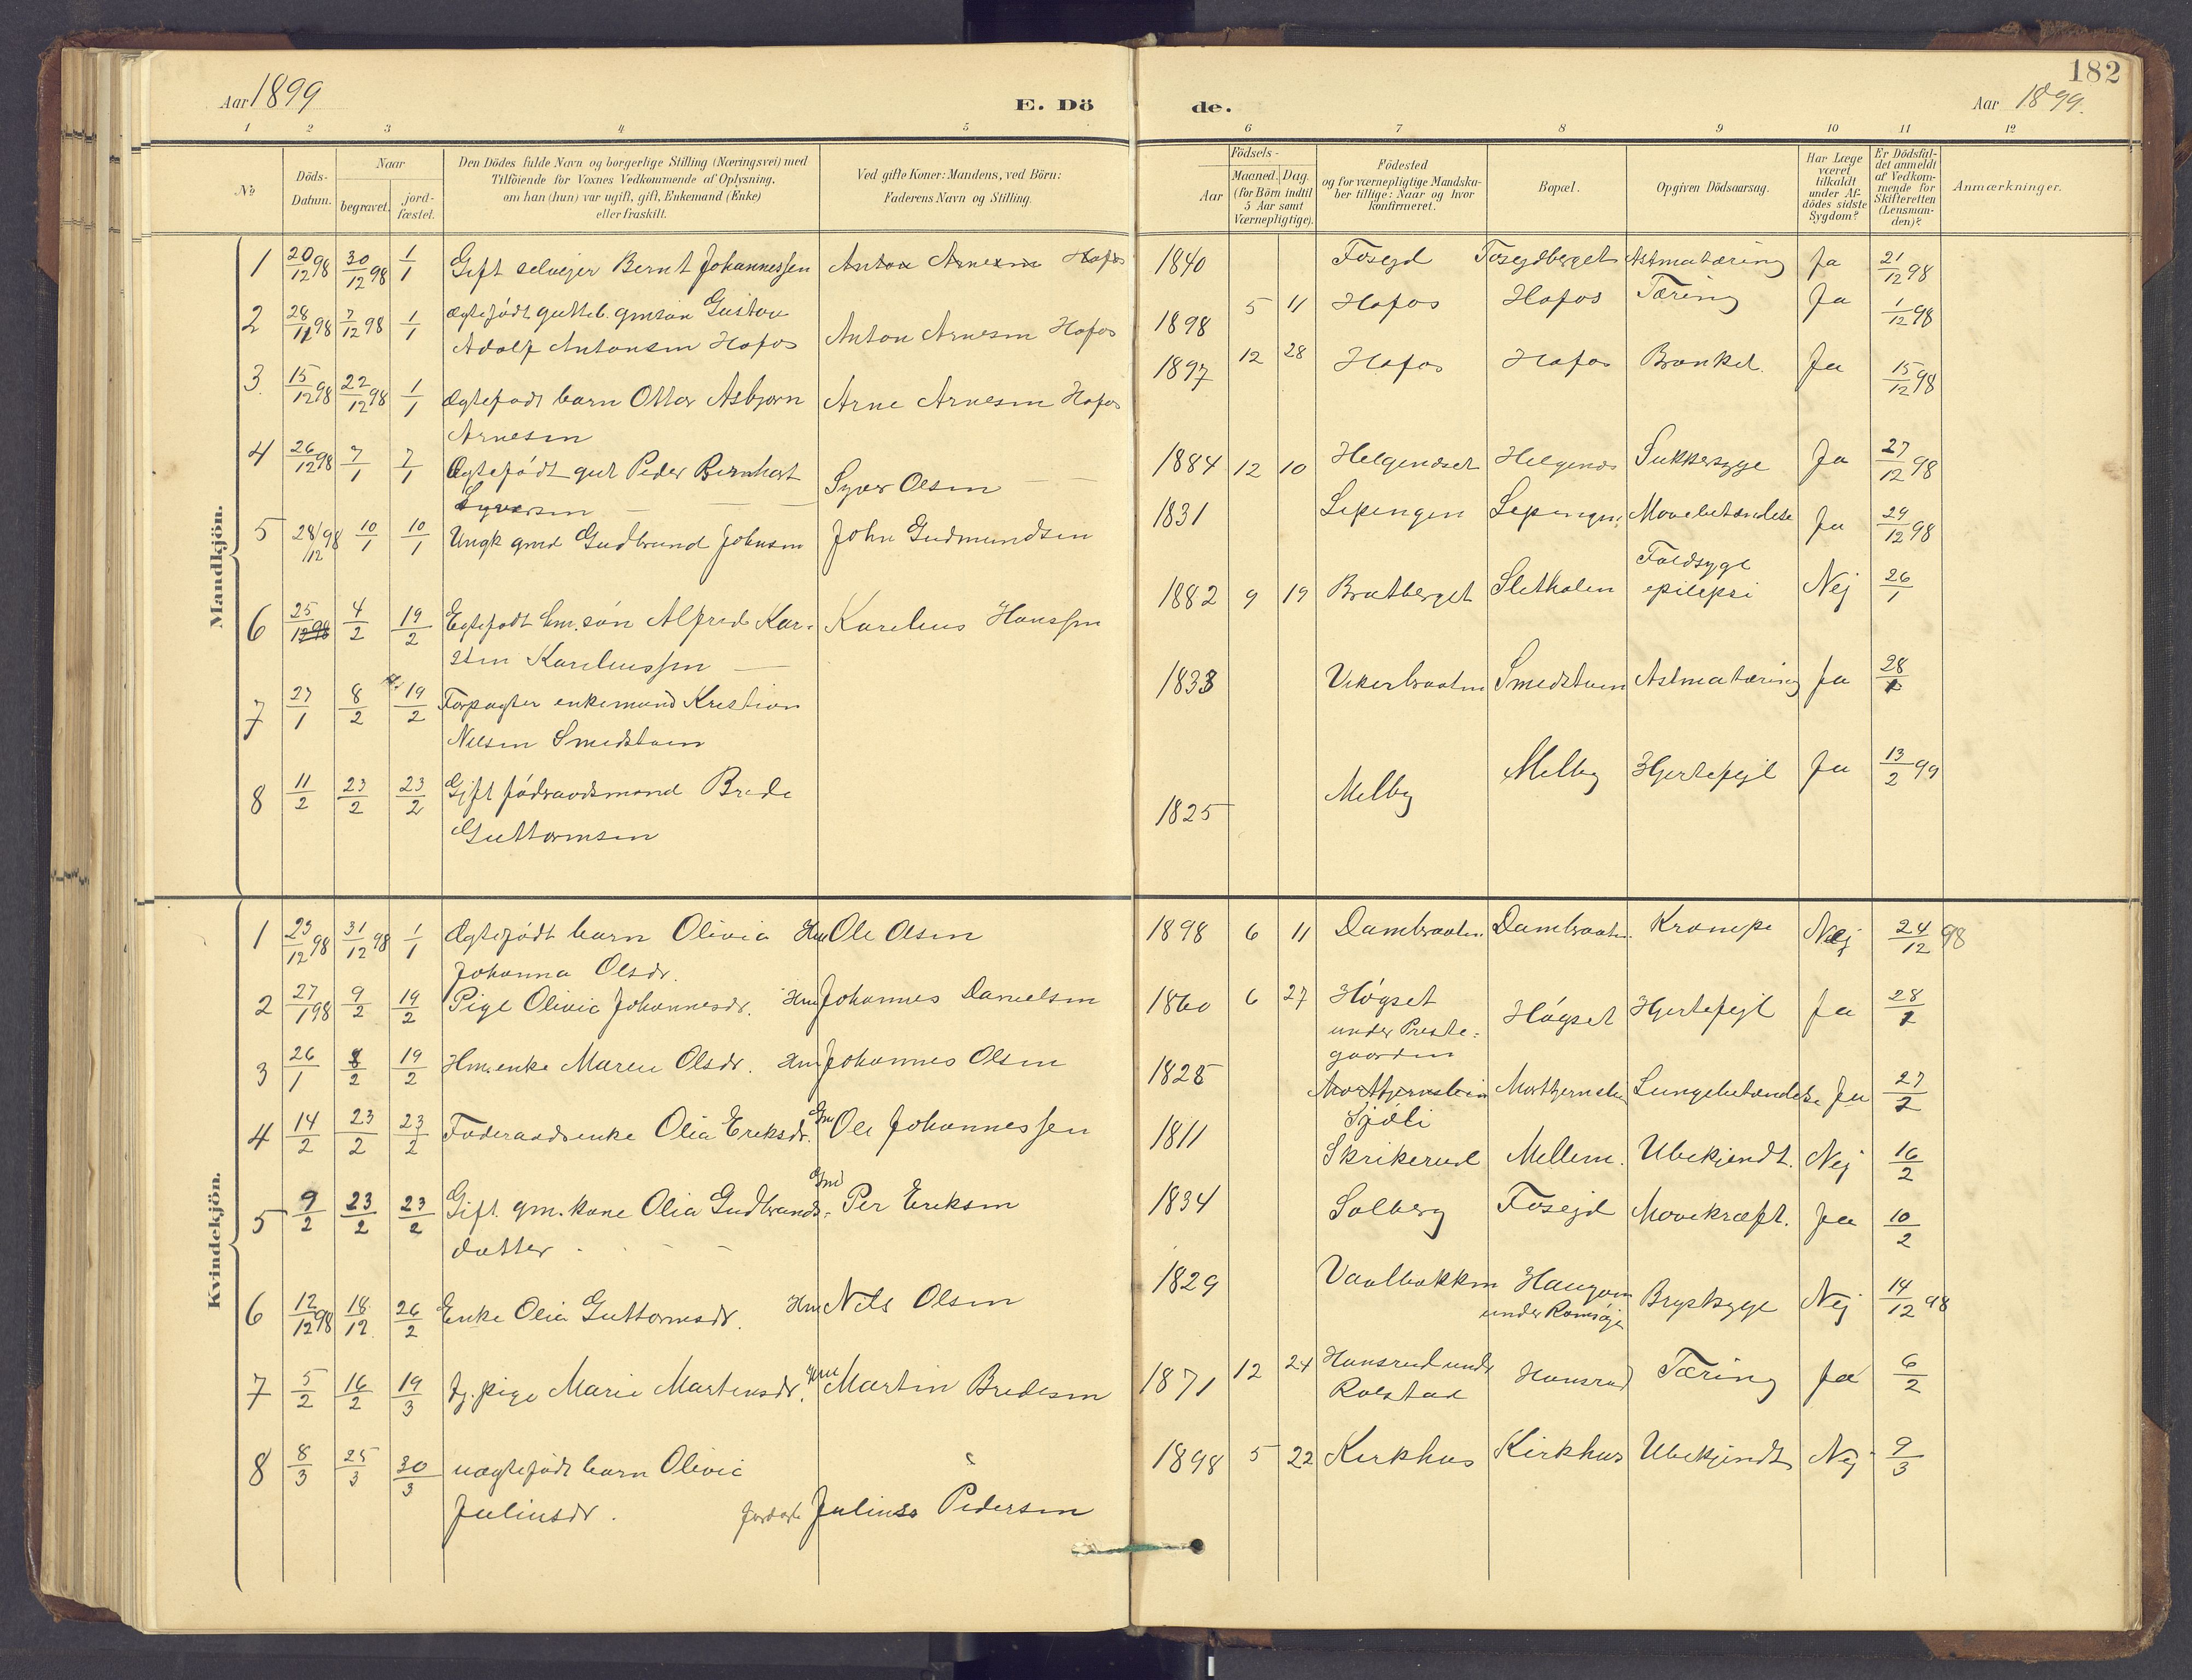 182
Aar 1899
E. Dö de.
Aar 1899.
1 2 3 4 5 6 7 8 9 10 11 12
No
Döds-Datum.
Naar begravet. jord-fæstet.
Den Dödes fulde Navn og borgerlige Stilling (Næringsvei) med
Tilföiende for Voxnes Vedkommende af Oplysning,
om han (hun) var ugift, gift, Enkemand (Enke)
eller fraskilt.
Ved gifte Koner: Mandens, ved Börn:
Faderens Navn og Stilling.
Födsels-
Aar Maaned. Dag.
(for Börn indtil 5 Aar samt Værnepligtige).
Födested
og for værnepligtige Mandska-
ber tillige: Naar og hvor
konfirmeret.
Bopæl.
Opgiven Dödsaarsag.
Har Læge været tilkaldt under Af-dödes sidste Sygdom?
Er Dödsfal-det anmeldt af Vedkom-mende for Skifteretten (Lensman-den)?
Anmærkninger.
Mandkjön.
1 20/12 98 30/12 98 1/1 Gift selvejer Bernt Johannessen Anton Arnesen Hofos 1840 Fosejd Astmatæring Ja 21/12 98
2 28/11 98 7/12 98 1/1 ægtefødt gutteb. gmsøn Gustav
Adolf Antonsen Hofos Anton Arnesen Hofos 1898 5 11 Hofos Hofos Tæring Ja 1/12 98
3. 15/12 98 22/12 98 1/1 ægtefødt barn Ottar Asbjørn
Arnesen Arne Arnesen Hofos 1897 12 28 Hofos Hofos Bronkit. Ja 15/12 98
4 26/12 98 7/1 7/1 Ægtefødt gut Peder Bernhart
Syversen Syver Olsen 1884 12 10 Helgendset Helgends Sukkersyge Ja 27/12 98
5 28/12 98 10/1 10/1 Ungk gmd Gudbrand Johnsen John Gudmundsen 1831 Sepengen Sepengen Mavebetændelse Ja 29/12 98
6 25/12 98 4/2 19/2 Egtefødt hm. søn Alfred Kar-
sten Kareliussen Karelius Hanssen 1882 9 19 Bratberget Sletholen Faldsyge
epilepsi Nej 26/1
7 27/1 8/2 19/2 Forpagter enkemand Kristian
Nilsen Smedstuen 1833 Vikerbraaten Smedstuen Astmatæring Ja 28/1
8 11/2 23/2 23/2 Gift födraadsmand Brede
Guttormsen 1825 Melby Melby Hjertefejl Ja 13/2 99
Kvindekjön.
1 23/12 98 31/12 98 1/1 Ægtefødt barn Olivia
Johanna Olsdr. Hm Ole Olsen 1898 6 11 Dambraaten Dambraaten Krampe Nej 24/12 98
2 27/1 98 9/2 19/2 Pige Olivia Johannesdr. Hm Johannes Danielsen 1860 6 27 Høgset
under Preste-
gaarden Høgset Hjertefejl Ja 28/1
3 26/1 8/2 19/2 Hm. enke Maren Olsdr. Hm Johannes Olsen 1825 Morttjernslien
Sjøli Lungebetændelse Ja 27/2
4 14/2 23/2 23/2 Føderaadsenke Olia Eriksdr. Gm Ole Johannessen 1811 Skrikerud Mellem. Ubekjendt. Nej 16/2
5 9/2 23/2 23/2 Gift. gm. kone Olia Gudbrands-
datter Gmd Per Eriksen 1834 Solberg Fosejd Mavekræft. Ja 10/2
6 12/12 98 18/12 26/2 Enke Olia Guttormsdr. Hm Nils Olsen 1829 Vaalbakken Haugen
under Brystsyge Nej 14/12 98
7 5/2 16/2 19/3 Tj. pige Marie Martinsdr. Hm Martin Bredesen 1871 12 24 Hansrud under
Rolstad Hansrud Tæring Ja 6/2
8 8/3 25/3 30/3 uægtefødt barn Olivia
Juliusdr. Julius Pedersen 1898 5 22 Kirkhus Kirkhus Ubekjendt Nej 9/3